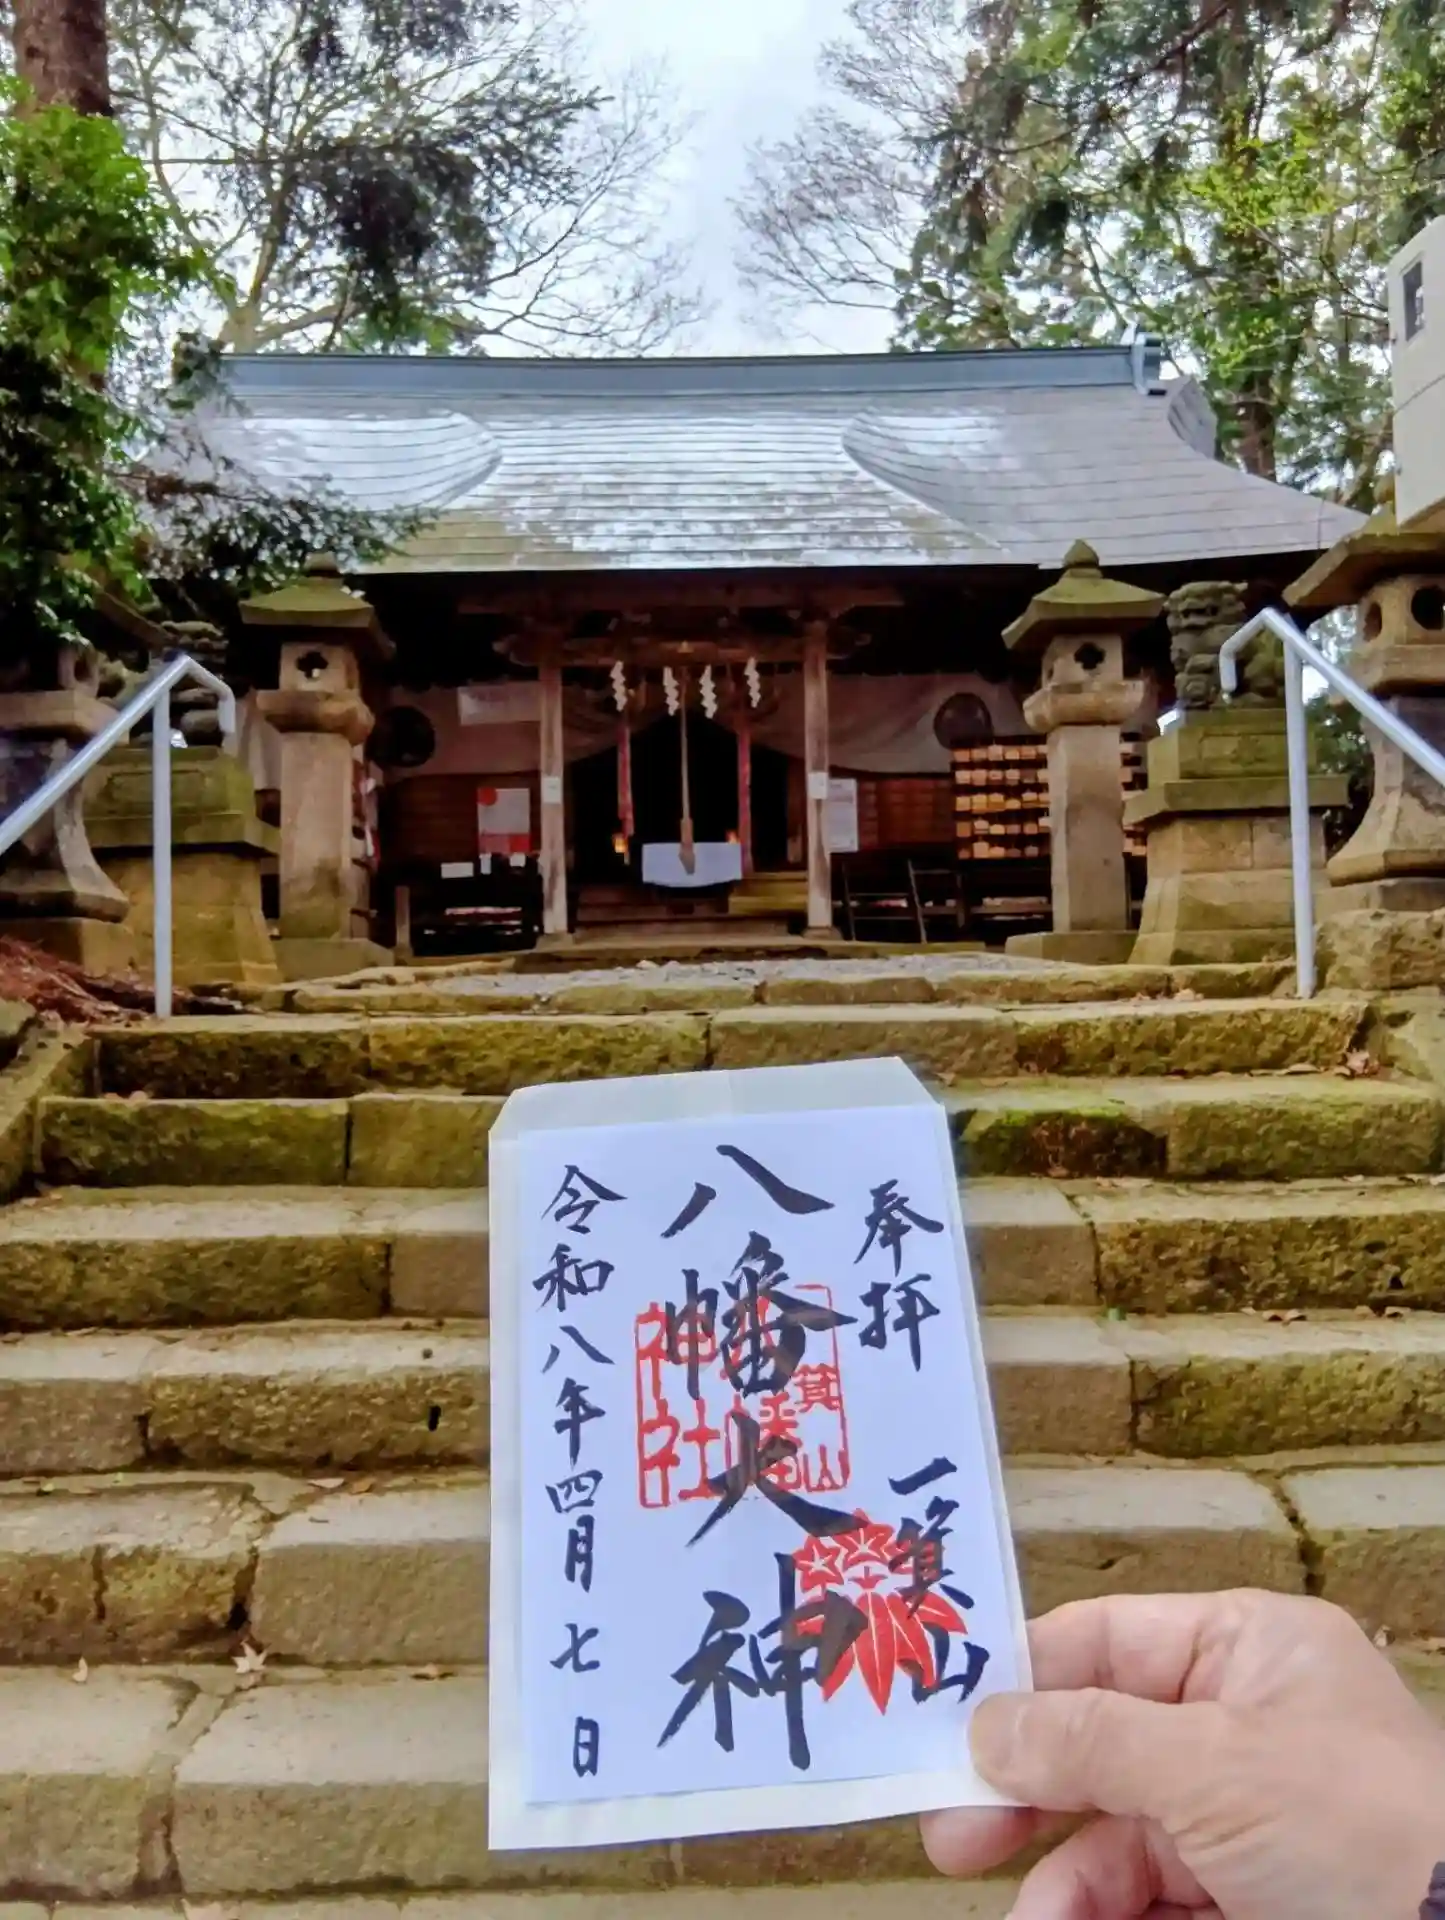 奉拝
一箕山
八幡大神
箕山
八幡
神社
令和八年四月七日